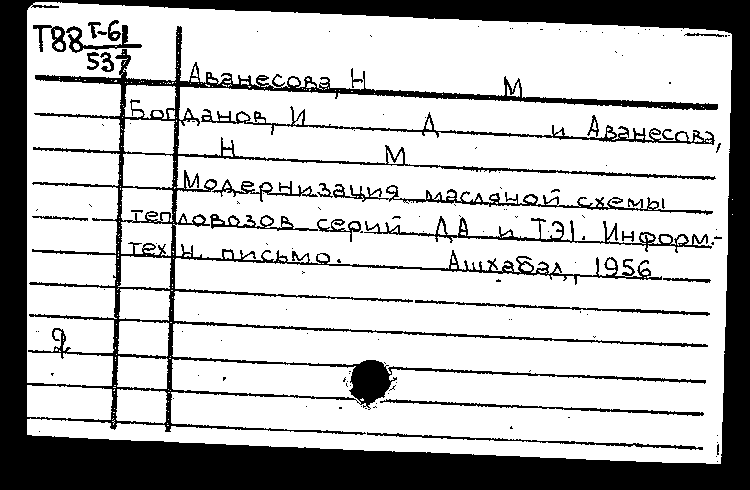 Т88 Т-61
537
Аванесова, Н М
Богданов, И Д и Аванесова,
Н М
Модернизация масляной схемы
тепловозов серий ДА и ТЭ1. Информ.-
техн. письмо. Ашхабад, 1956